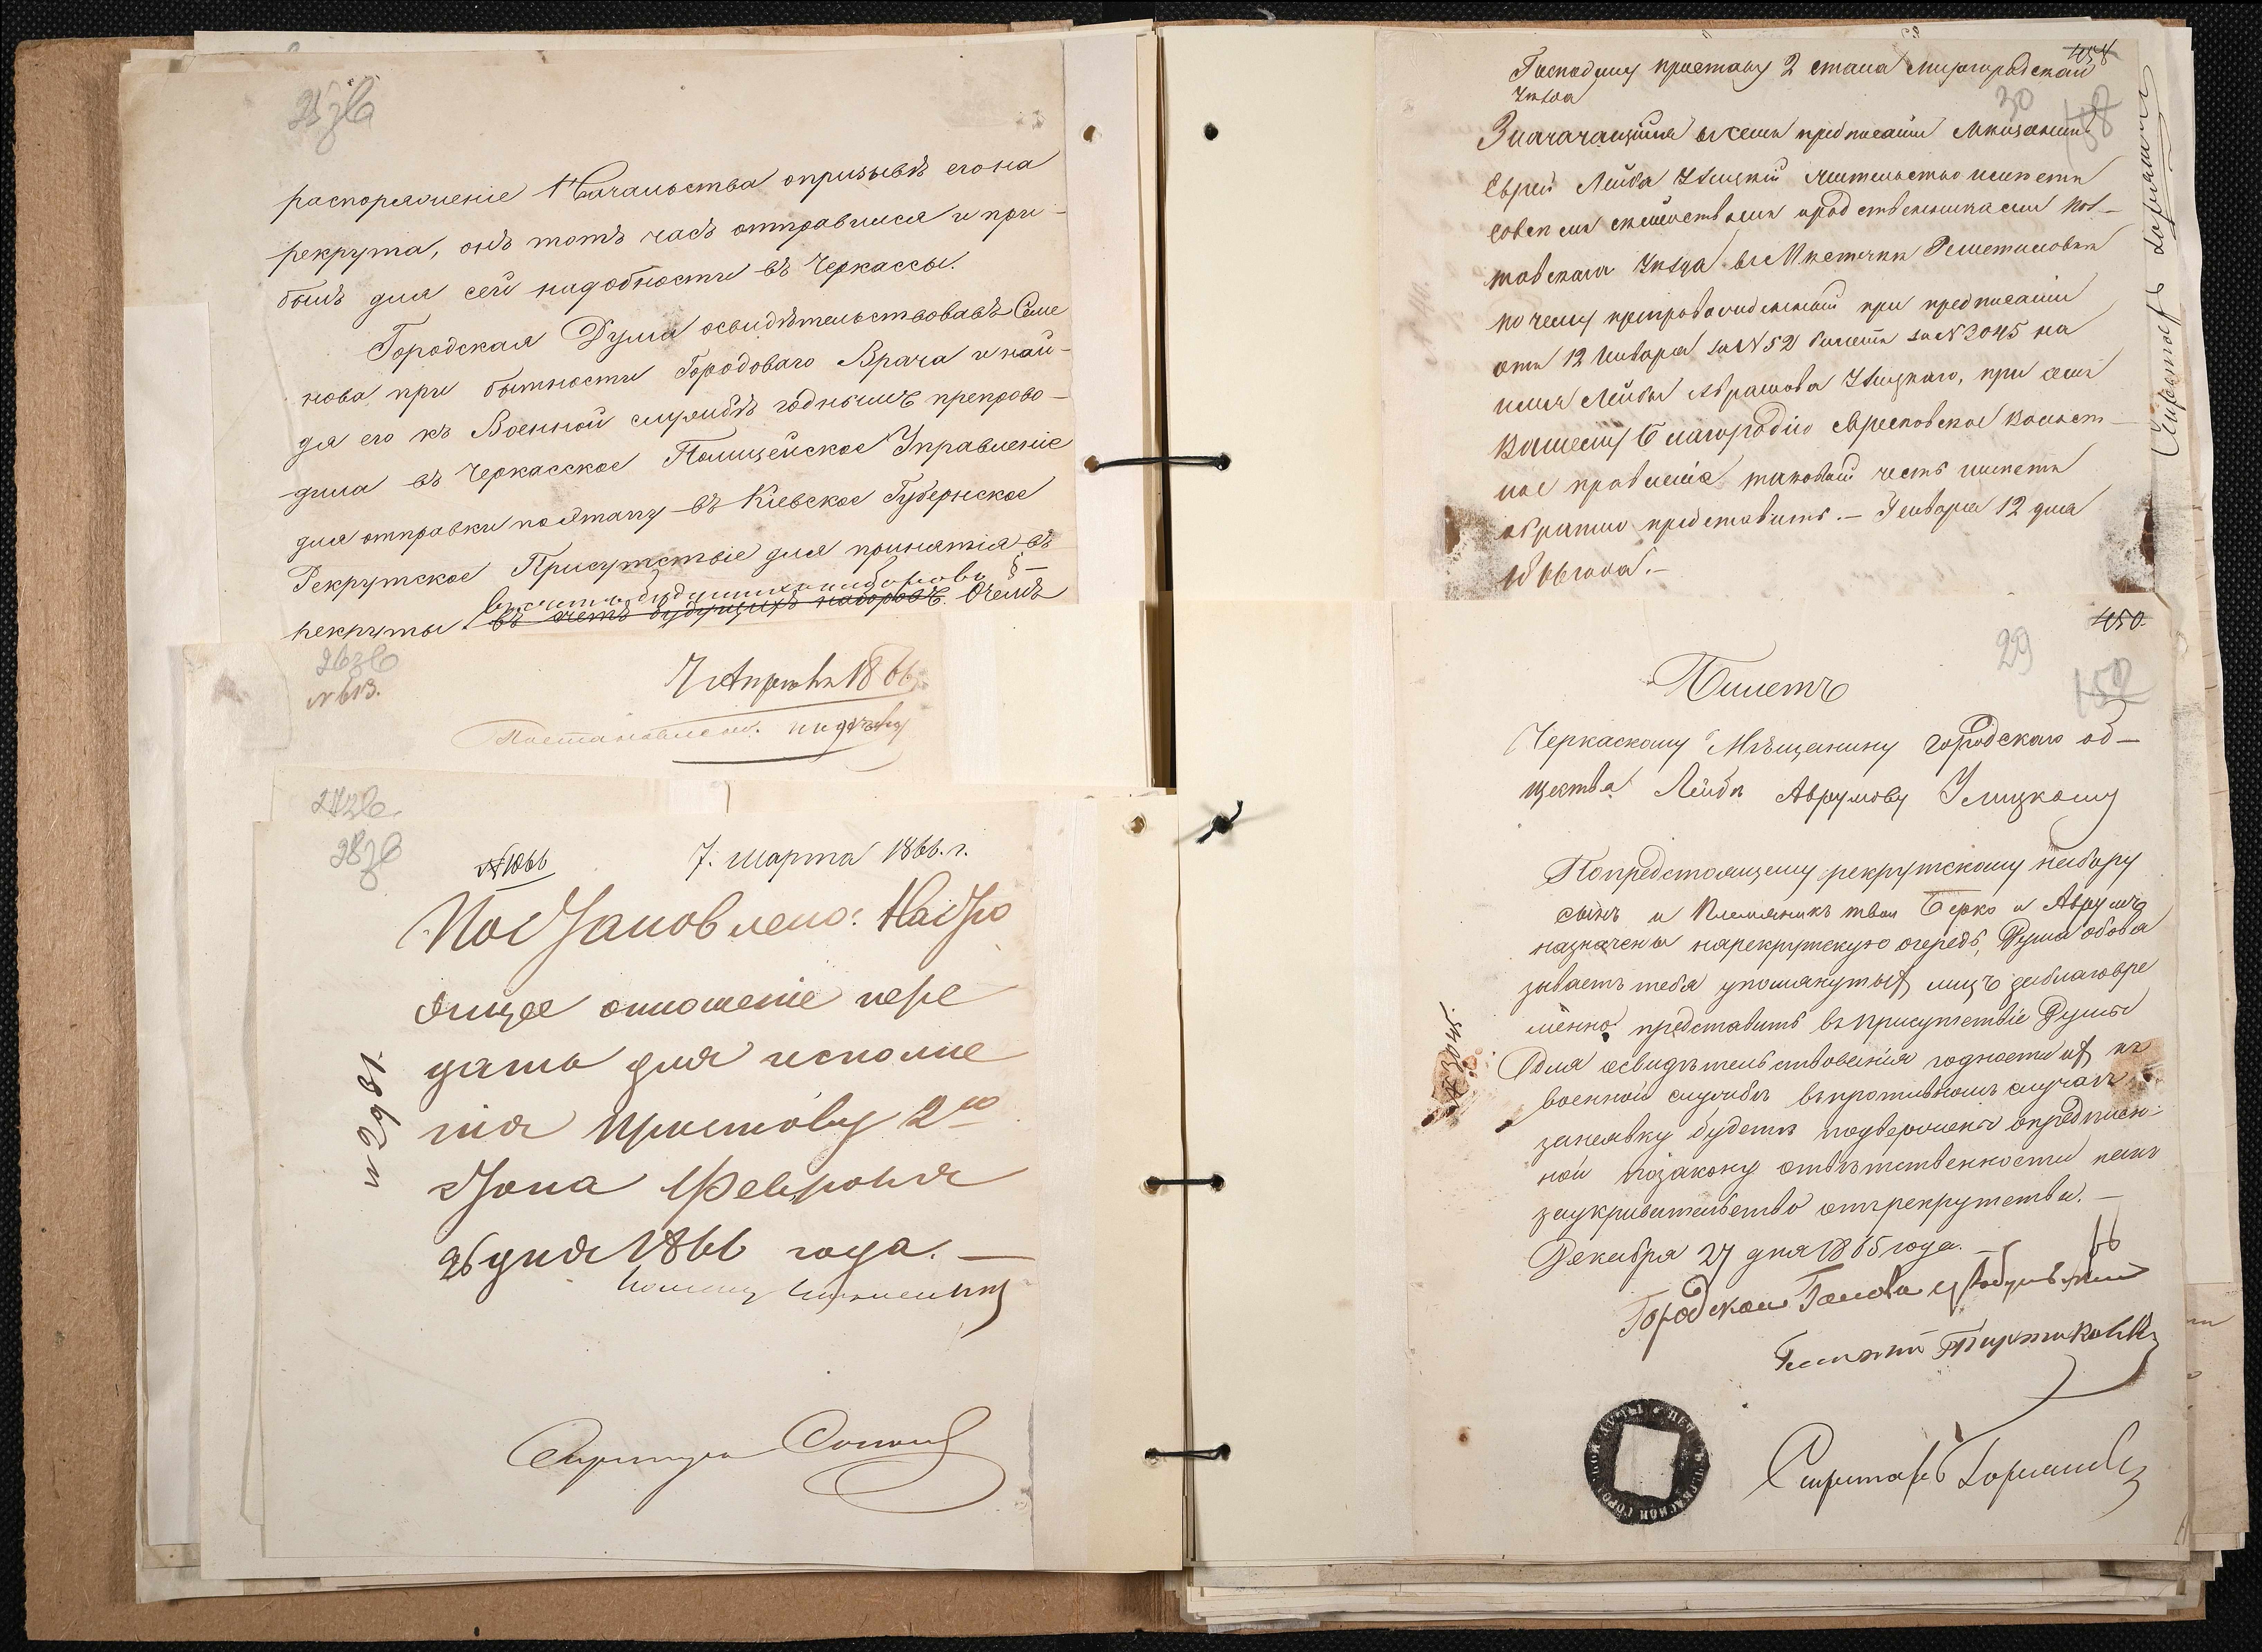 25 зв
распоряженіе Начальства опризывѣ егона
рекрута, онъ тотъ часъ отправился и при-
былъ для сей надобности въ Черкассы.
Городская Дума освидѣтельствовавъ Семе
нова при бытности Городоваго Врача и най-
дя его къ Военной службѣ годнымъ препрово-
дила въ Черкасское Полицейское Управленіе
для отправки поэтапу въ Кіевское Губернское
Рекрутское Присутствіе для принятія въ
въ счетъ будущихъ наборовъ §-
рекруты. въ счетъ будущихъ наборовъ. Очемъ
26 зв
№ 613.
7 Апрѣля 1866
Постановлен.
27 зв
28 зв
№ 1066
7. марта 1866. г.
Постановлено: Насто
ящее отношеніе пере
дать для исполне
нія Приставу 2го
Стана Февраля
26 дня 1866 года. —
№ 2981.
458
Господину приставу 2 стана Миргородскаго
уѣзда
30
158
Значащійся въ семъ предписаніи Мѣщанинъ
Еврей Лейба Улицкій жительство имѣетъ
совсѣмъ семействомъ и родственниками Пол-
тавскаго Уѣзда въ Мѣстечкѣ Решетиловкѣ
по чему препровожденный при предписаніи
отъ 12 Января за № 52 билетъ за № 3045 на
имя Лейбы Абрамова Улицкаго, при семъ
Вашему Благородію Волост-
ное правленіе таковый честь имѣетъ
обратно представить. — Генваря 12 дня
1866 года. —
450.
29
150
Билетъ
Черкаскому Мѣщанину городскаго об-
щества Лейбѣ Аврумову Улицкому
Попредстоящему рекрутскому набору
сынъ и племяникъ твои Берко и Аврумъ
назначены нарекрутскую очередь, Дума обовя
зываетъ тебя упомянутых лицъ заблаговре
менно представить въ присутствіе Думы
для освидѣтельствованія годности их къ
военной службѣ въпротивномъ случаѣ
занеявку будетъ подверженъ опредѣлен-
ной позакону отвѣтственности какъ
заукривательство отърекрутства. —
Декабря 27 дня 1865 года. —
№ 3045.
Городской Голова
Секретарь